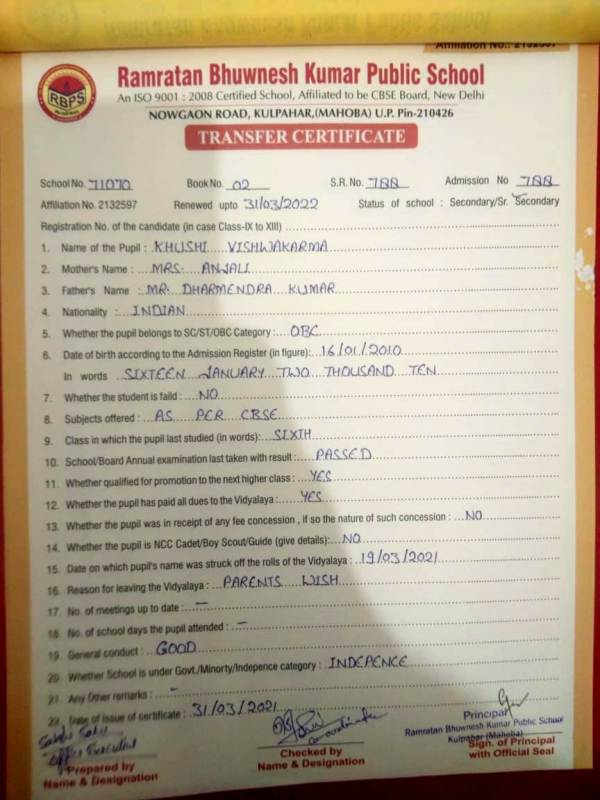 Affiliation No.: 2132597
RBPS
Ramratan Bhuwnesh Kumar Public School
An ISO 9001 : 2008 Certified School, Affiliated to be CBSE Board, New Delhi
NOWGAON ROAD, KULPAHAR,(MAHOBA) U.P. Pin-210426
TRANSFER CERTIFICATE
School No. 71070 Book No. 02 S.R. No. 788 Admission No 788
Affiliation No. 2132597 Renewed upto 31/03/2022 Status of school : Secondary/Sr. Secondary
Registration No. of the candidate (in case Class-IX to XIII)
1. Name of the Pupil : KHUSHI VISHWAKARMA
2. Mother's Name : MRS. ANJALI
3. Father's Name : MR. DHARMENDRA KUMAR
4. Nationality : INDIAN
5. Whether the pupil belongs to SC/ST/OBC Category : OBC
6. Date of birth according to the Admission Register (in figure): 16/01/2010
In words SIXTEEN JANUARY TWO THOUSAND TEN
7. Whether the student is faild : NO
8. Subjects offered : AS PER CBSE
9. Class in which the pupil last studied (in words): SIXTH
10. School/Board Annual examination last taken with result : PASSED
11. Whether qualified for promotion to the next higher class : YES
12. Whether the pupil has paid all dues to the Vidyalaya : YES
13. Whether the pupil was in receipt of any fee concession , if so the nature of such concession : NO
14. Whether the pupil is NCC Cadet/Boy Scout/Guide (give details): NO
15. Date on which pupil's name was struck off the rolls of the Vidyalaya : 19/03/2021
16. Reason for leaving the Vidyalaya : PARENTS WISH
17. No. of meetings up to date : –
18. No. of school days the pupil attended : –
19. General conduct : GOOD
20. Whether School is under Govt./Minorty/Indepence category : INDEPENCE
21. Any Other remarks : –
22. Date of issue of certificate : 31/03/2021
Office Executive
Prepared by
Name & Designation
Co-ordinator
Checked by
Name & Designation
Principal
Ramratan Bhuwnesh Kumar Public School
Kulpahar (Mahoba)
Sign. of Principal
with Official Seal